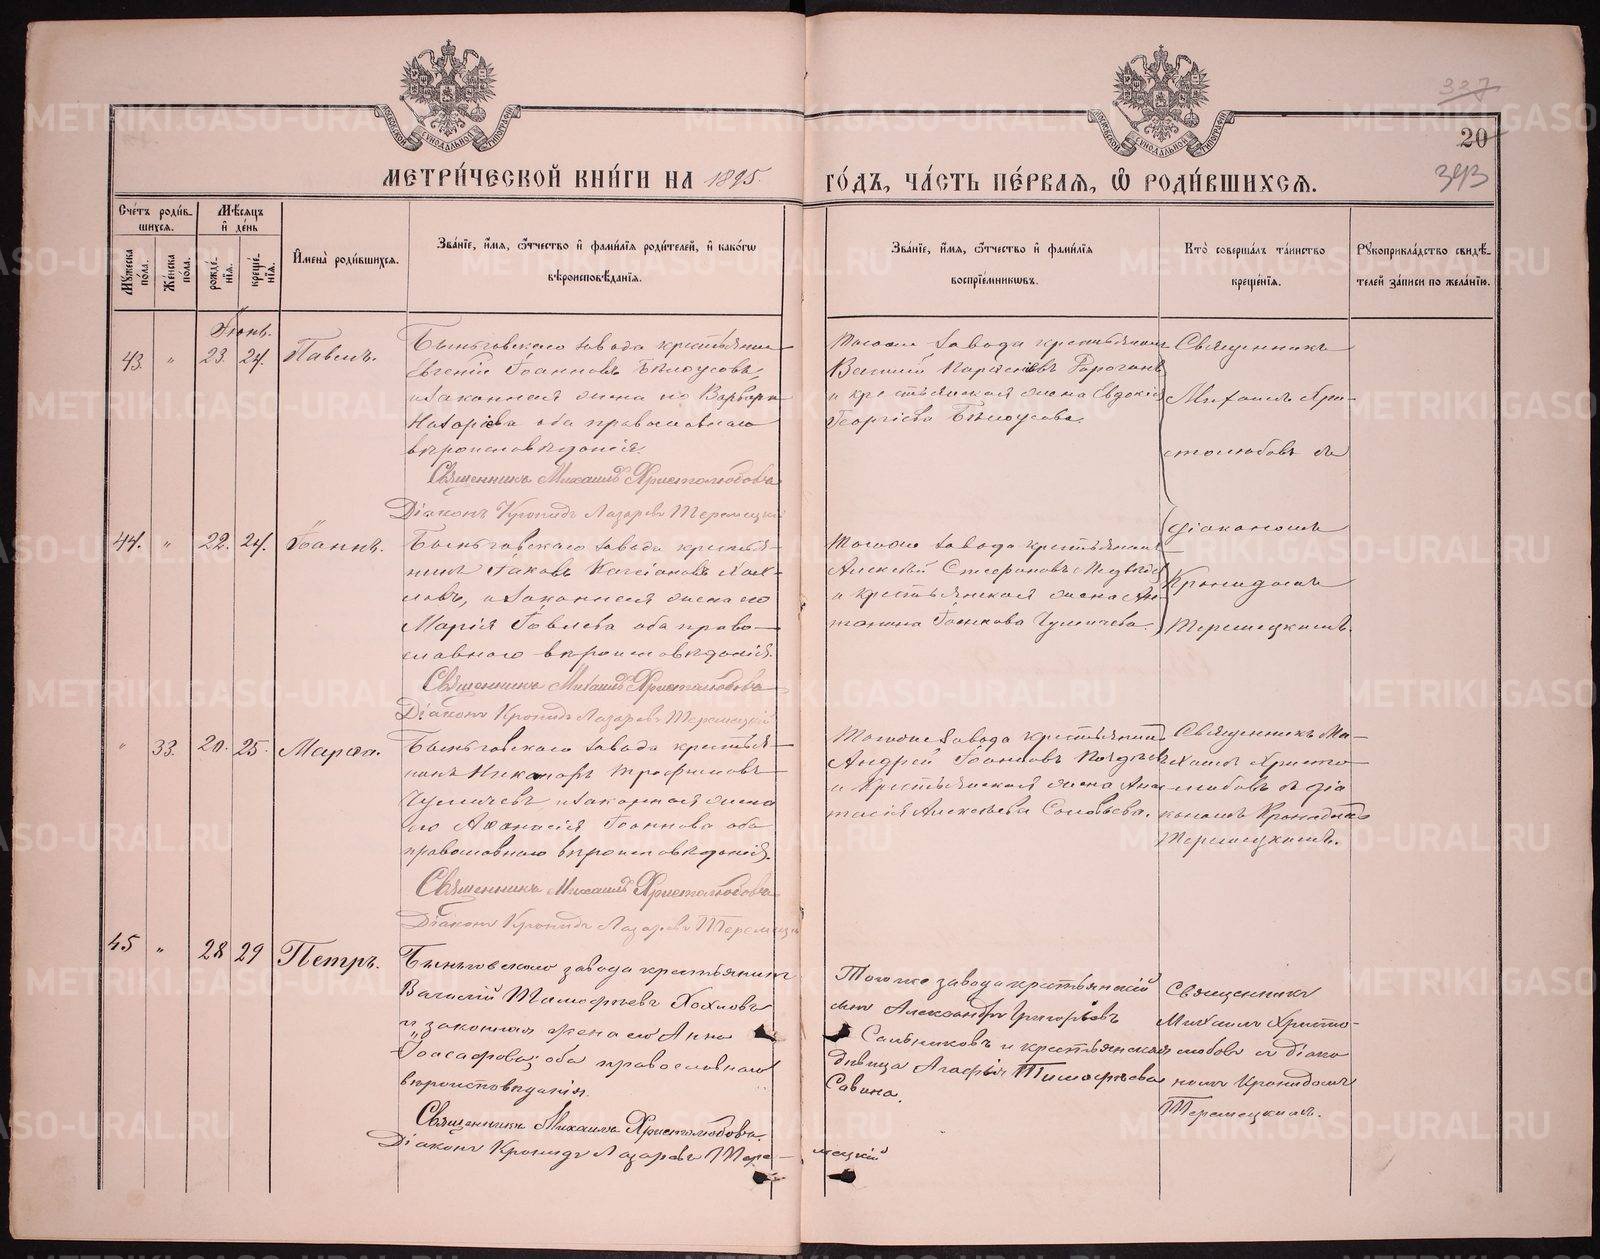 МЕТРИ́ЧЕСКОЙ КНИ́ГИ НА 1895 ГО́ДЪ, ЧА́СТЬ ПЕ́РВАЯ, Ѡ҆ РОДИ́ВШИХСЯ.
327
20
393
Сче́тъ роди́в-
шихся.
Мꙋжеска пола.
Же́нска пола.
Мѣ́сяцъ
и҆ де́нь
рожде́-
нїя.
креще́-
нїя.
И҆мена̀ роди́вшихся.
Зва́нїе, и҆́мя, ѻ҆́тчество и҆ фами́лїя роди́телей, и҆ како́гѡ
вѣроисповѣ́данїя.
Зва́нїе, и҆́мя, ѻ҆́тчество и҆ фами́лїя
воспрїе́мниковъ.
Кто̀ соверша́лъ та́инство
креще́нїя.
Рꙋкоприкла́дство свидѣ́-
телей за́писи по жела́нїю.
Іюнь.
43. " 23. 24. Павелъ.
Быньговскаго завода крестьянинъ
Евгеній Іоанновъ Бѣлоусовъ,
и законная жена его Варвара
Назаріева оба православнаго
вѣроисповѣданія.
Священникъ Михаилъ Христолюбовъ
Діаконъ Кронидъ Лазаревъ Теремецкій
Тогоже завода крестьянинъ
Василій
и крестьянская жена Евдокія
Георгіева Бѣлоусова.
Священникъ
Михаилъ Хри-
столюбовъ съ
діакономъ
Кронидомъ
Теремецкимъ.
44. " 22. 24. Іоаннъ.
Быньговскаго завода крестья-
нинъ Іаковъ Кассіановъ Хох-
ловъ, и законная жена его
Марія Іовлева оба право-
славнаго вѣроисповѣданія.
Священникъ Михаилъ Христолюбовъ
Діаконъ Кронидъ Лазаревъ Теремецкій
Тогоже завода крестьянинъ
Алексѣй Стефановъ
и крестьянская жена Ан-
тонина
" 33. 20. 25. Марѳа.
Быньговскаго завода крестья-
нинъ Никаноръ Трофимовъ
и законная жена
его Аѳанасія Іоаннова оба
православнаго вѣроисповѣданія.
Священникъ Михаилъ Христолюбовъ
Діаконъ Кронидъ Лазаревъ Теремецкій
Тогоже завода крестьянинъ
Андрей Іоанновъ
и крестьянская жена Ана-
тасія Алексѣева Соловьева.
Священникъ Ми-
хаилъ Христо-
любовъ съ діа-
кономъ Кронидомъ
Теремецкимъ.
45 " 28 29 Петръ.
Быньговскаго завода крестьянинъ
Василій Тимофѣевъ Хохловъ
и законная жена его Анна
Іоасафова; оба православнаго
вѣроисповѣданія.
Священникъ Михаилъ Христолюбовъ.
Діаконъ Кронидъ Лазаревъ Тере-мецкій
Тогоже завода крестьянскій
сынъ Александръ Григорьевъ
Сальниковъ и крестьянская
дѣвица Агафья Тимофѣева
Савина.
Священникъ
Михаилъ Христо-
любовъ и діако-
номъ Кронидомъ
Теремецкимъ.
METRIKI.GASO-URAL.RU